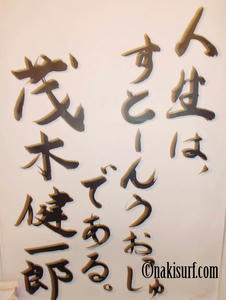 人生は、
すとーんうぉっしゅ
である。
茂木健一郎
©nakisurf.com